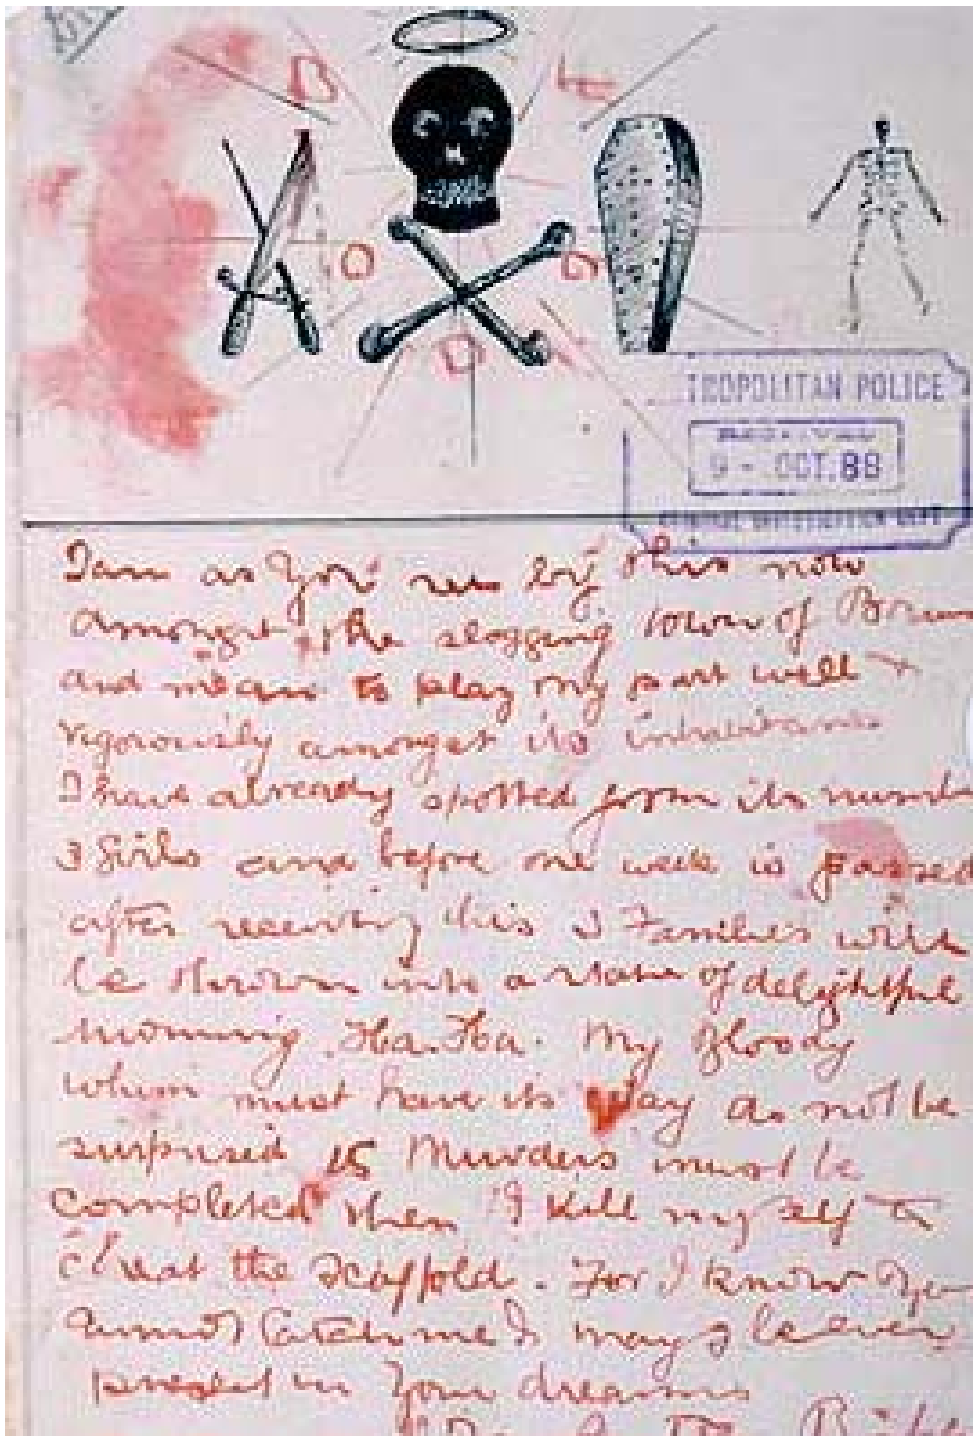 TROPOLITAN POLICE
9 - OCT. 88
I am as you see by this now
amongst the slogging town of
and mean to play my part well &
vigorously amongst its inhabitants
I have already spotted from its numb
3 Girls and before one week is passed
after receiving this 3 Families will
be thrown into a state of delightful
mourning. Ha. Ha. My Bloody
whim must have its way do not be
surprised 15 Murders must be
completed then I kill myself to
cheat the Scaffold. For I know you
cannot Catch me & may I be even
present in Your dreams